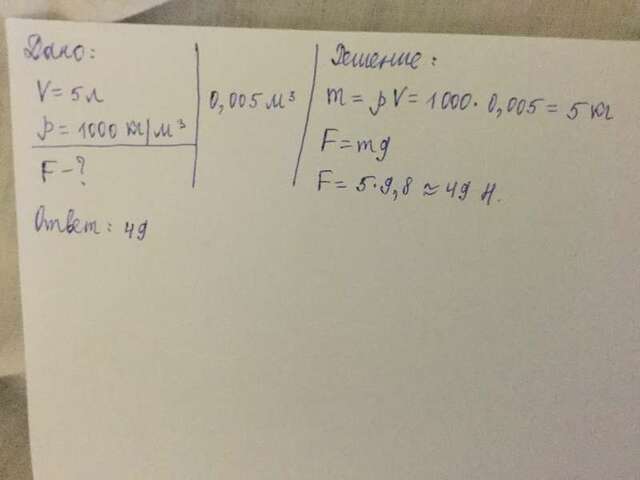 Дано:
V = 5 л
0,005 м³
ρ = 1000 кг/м³
F - ?
Решение:
m = ρV = 1000 · 0,005 = 5 кг
F = mg
F = 5 · 9,8 ≈ 49 Н.
Ответ: 49